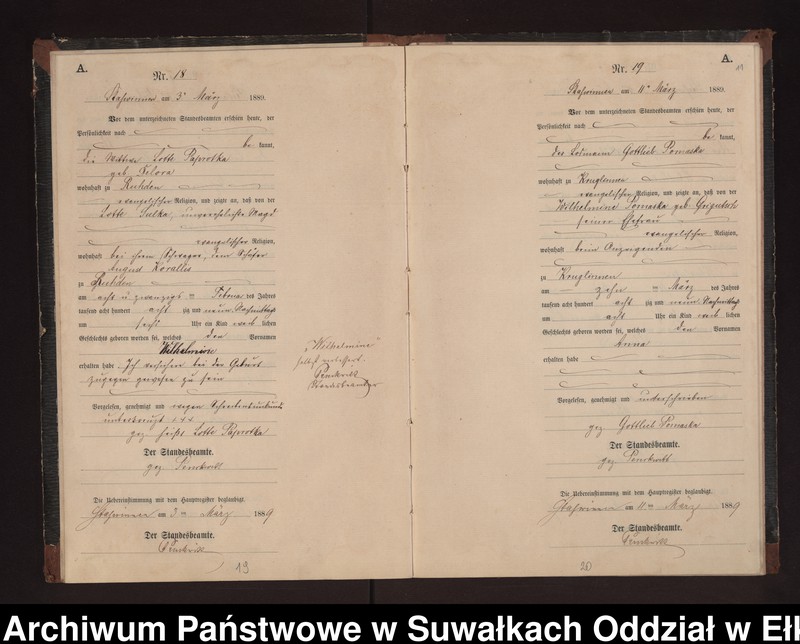 A.
Nr. 18
am 3ten März 1889.
Vor dem unterzeichneten Standesbeamten erschien heute, der
Persönlichkeit nach
be kannt,
die Lotte
geb
wohnhaft zu Ruhden
evangelischer Religion, und zeigte an, daß von der
Lotte Sulka, unverehelichte Magd
evangelischer Religion,
wohnhaft bei ihrem Schwager, dem
August
zu Ruhden
am acht u zwanzigs ten Februar des Jahres
tausend acht hundert acht zig und neun Nachmittags
um sechs Uhr ein Kind weib lichen
Geschlechts geboren worden sei, welches den Vornamen
Wilhelmine
erhalten habe. Ich versichere bei der Geburt
zugegen gewesen zu sein
Vorgelesen, genehmigt und wegen Schreibensunkunde
unterkreuzt +++
gez. Lotte
Der Standesbeamte.
gez.
Die Uebereinstimmung mit dem Hauptregister beglaubigt.
am 3ten März 1889
Der Standesbeamte.
19
„Wilhelmine“
Standesbeamter
A.
19
Nr. 19
am 11ten März 1889.
Vor dem unterzeichneten Standesbeamten erschien heute, der
Persönlichkeit nach
be kannt,
der Losmann Gottlieb
wohnhaft zu
evangelischer Religion, und zeigte an, daß von der
Wilhelmine geb
seiner Ehefrau
evangelischer Religion,
wohnhaft beim Anzeigenden
zu
am zehn ten März des Jahres
tausend acht hundert acht zig und neun Nachmittags
um acht Uhr ein Kind weib lichen
Geschlechts geboren worden sei, welches den Vornamen
Anna
erhalten habe
Vorgelesen, genehmigt und unterschrieben
gez Gottlieb
Der Standesbeamte.
gez
Die Uebereinstimmung mit dem Hauptregister beglaubigt.
am 11ten März 1889
Der Standesbeamte.
20
Archiwum Państwowe w Suwałkach Oddział w Eł